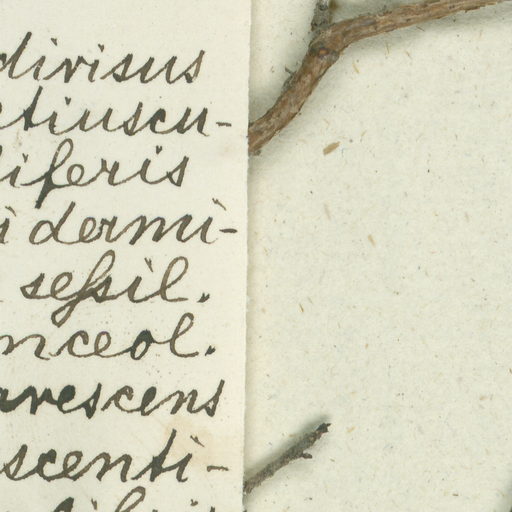 divisus
ctiuscu-
liferis
idermi-
sessil.
nceol.
arescens
scenti-